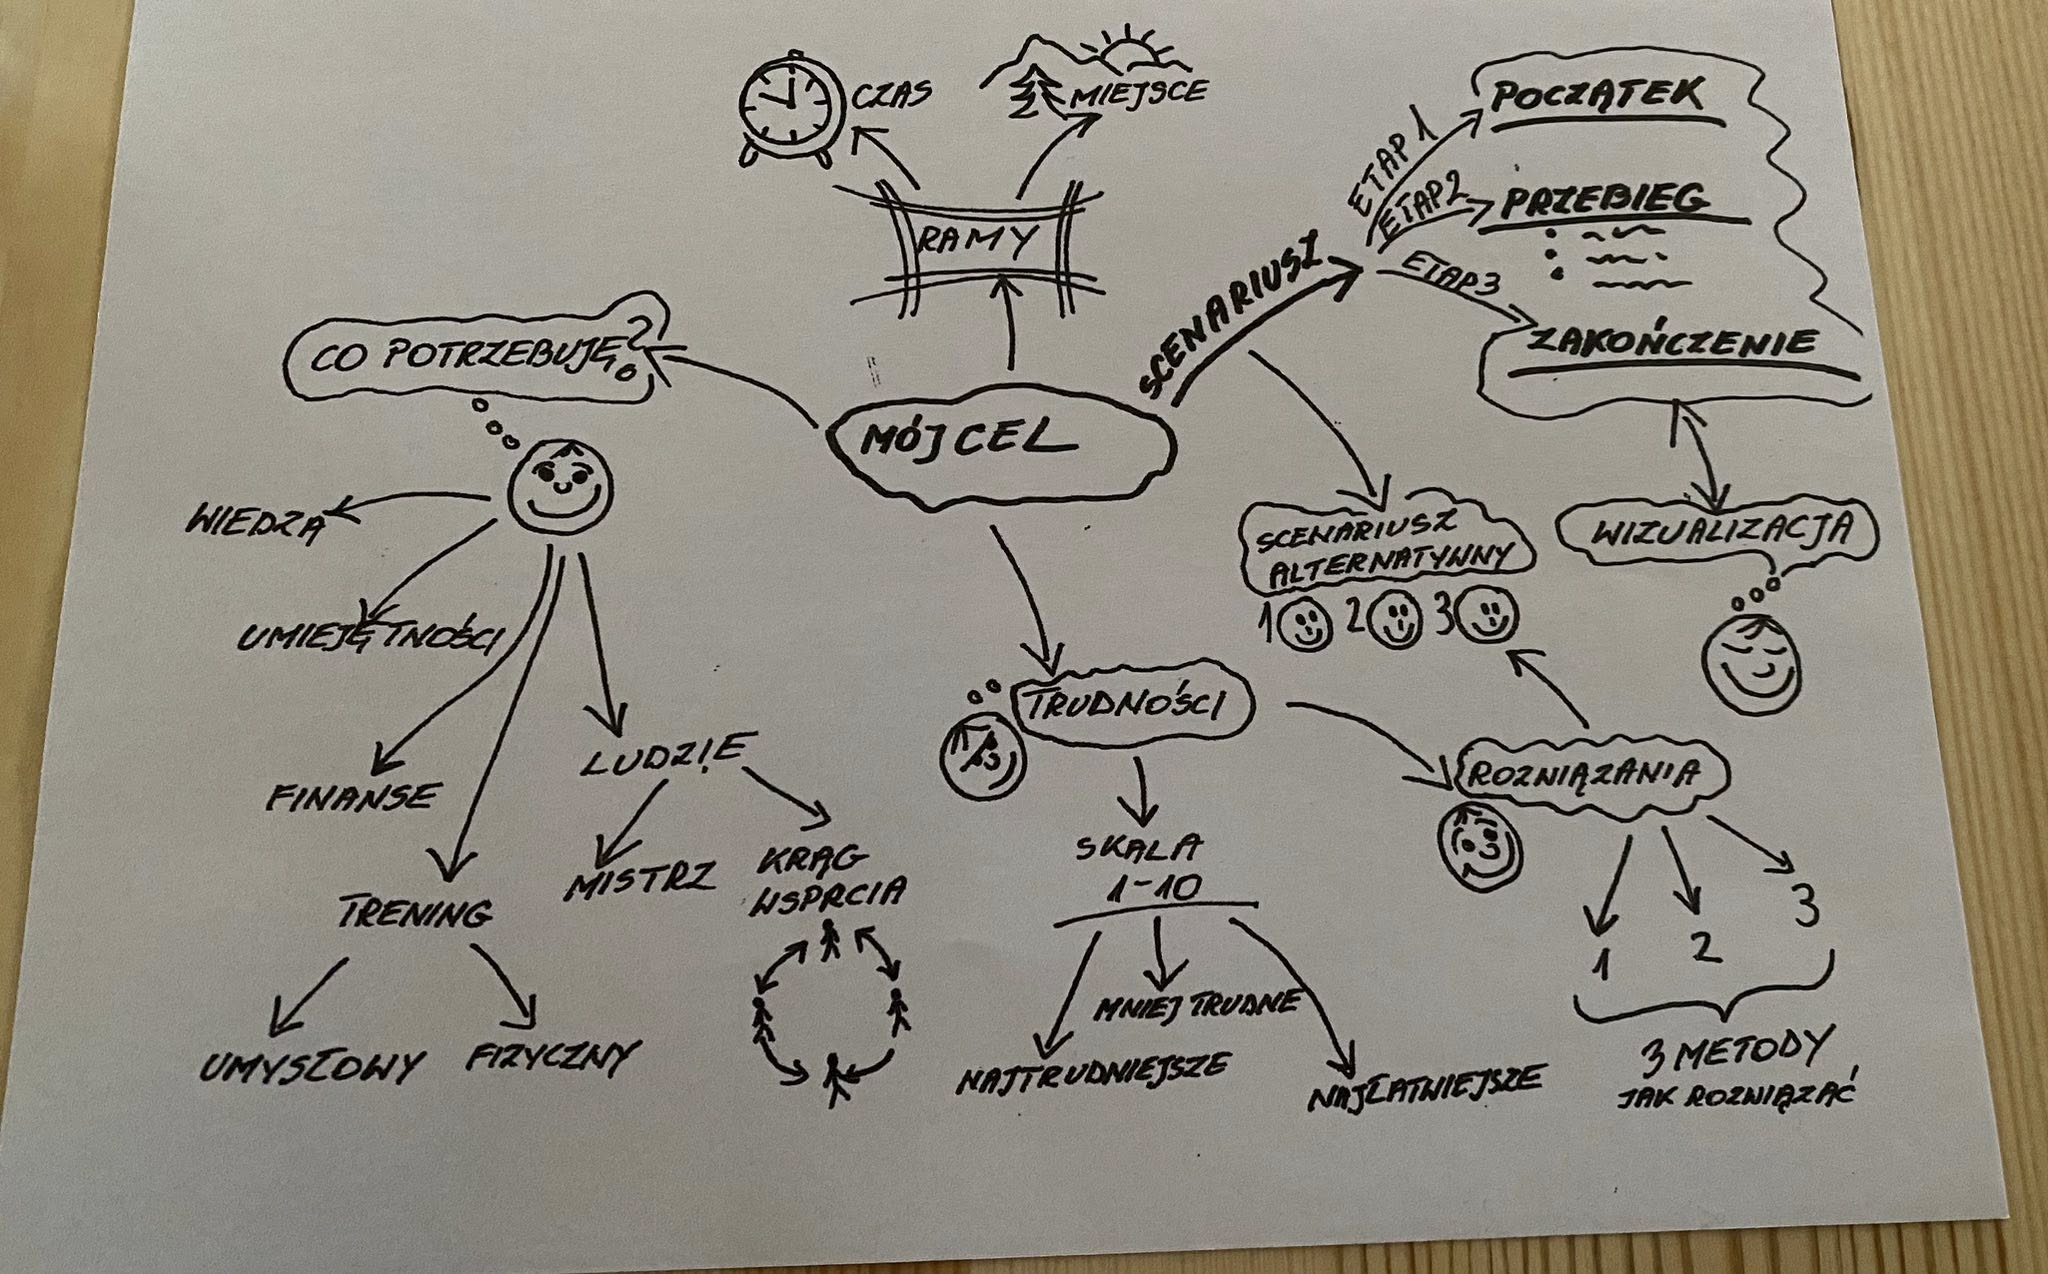 CZAS
MIEJSCE
RAMY
SCENARIUSZ
ETAP 1
POCZĄTEK
ETAP 2
PRZEBIEG
ETAP 3
ZAKOŃCZENIE
CO POTRZEBUJĘ?
MÓJ CEL
WIEDZA
UMIEJĘTNOŚCI
FINANSE
LUDZIE
MISTRZ
KRĄG
WSPRCIA
TRENING
UMYSŁOWY
FIZYCZNY
SCENARIUSZ
ALTERNATYWNY
1 2 3
WIZUALIZACJA
TRUDNOŚCI
SKALA
1-10
MNIEJ TRUDNE
NAJTRUDNIEJSZE
NAJŁATWIEJSZE
ROZWIĄZANIA
1 2 3
3 METODY
JAK ROZWIĄZAĆ